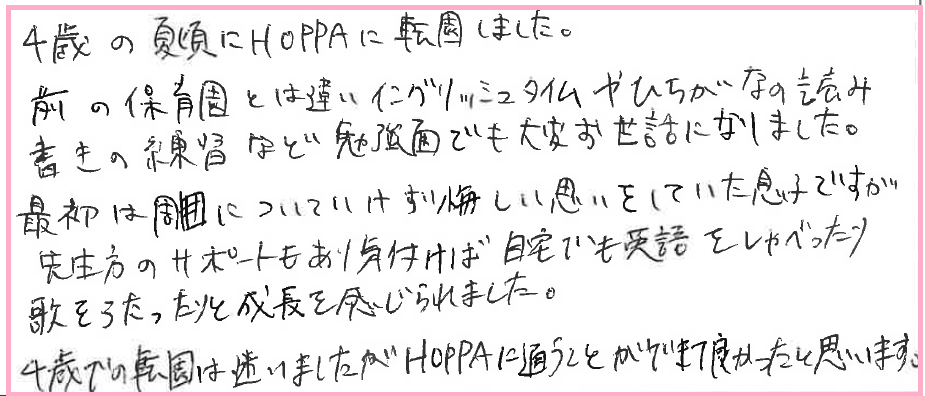 4歳の夏頃にHOPPAに転園しました。
前の保育園とは違いイングリッシュタイムやひらがなの読み
書きの練習など勉強面でも大変お世話になりました。
最初は周囲についていけず悔しい思いをしていた息子ですが
先生方のサポートもあり気付けば自宅でも英語をしゃべったり
歌をうたったりと成長を感じられました。
4歳での転園は迷いましたがHOPPAに通うことができて良かったと思います。